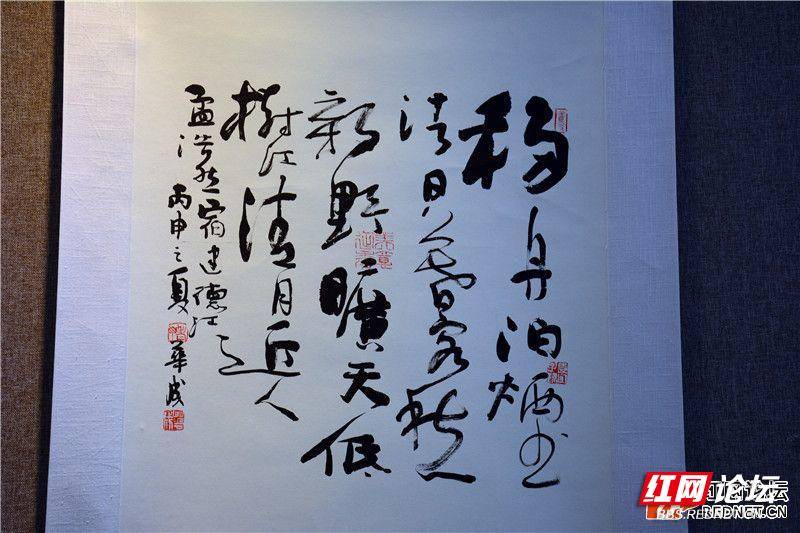 移舟泊煙
渚日暮客愁
新野曠天低
樹江清月近人
孟浩然宿建德江
丙申之夏 華成
红网论坛
REDNET.CN